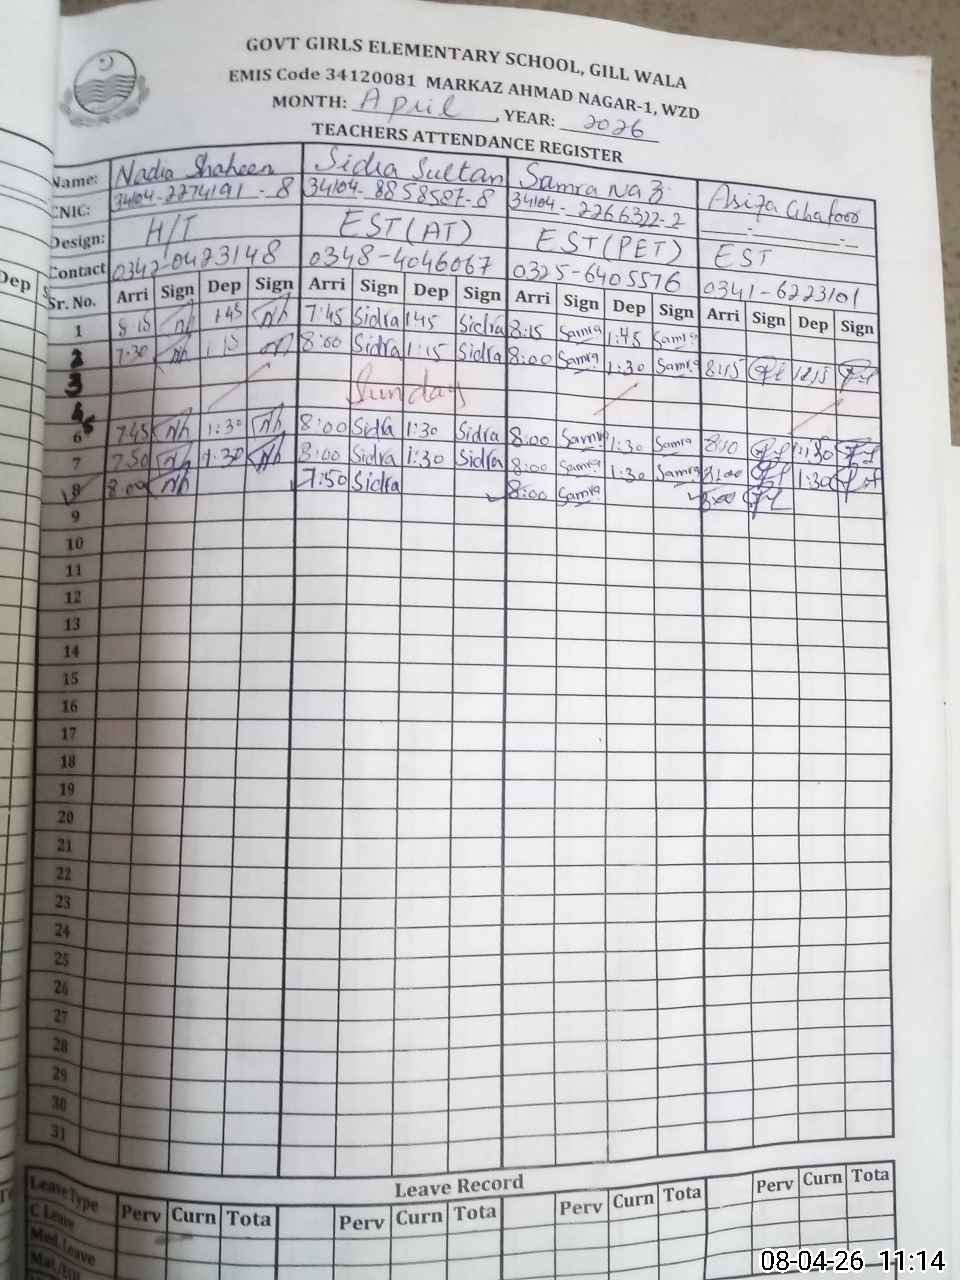 GOVT GIRLS ELEMENTARY SCHOOL, GILL WALA
EMIS Code 34120081 MARKAZ AHMAD NAGAR-1, WZD
MONTH: April, YEAR: 2026
TEACHERS ATTENDANCE REGISTER
Name: Nadia Shaheen Sidra Sultan Samra Naz Asifa Ghafoor
CNIC: 34104-2274191-8 34104-8858587-8 34104-2266322-2
Design: H/T EST(AT) EST(PET) EST
Contact 0342-0423148 0348-4046067 0325-6405576 0341-6223101
Dep
Sr. No. Arri Sign Dep Sign Arri Sign Dep Sign Arri Sign Dep Sign Arri Sign Dep Sign
1 8:15 1:45 7:45 Sidra 1:45 Sidra 8:15 Samra 1:45 Samra
2 7:30 1:15 8:00 Sidra 1:15 Sidra 8:00 Samra 1:30 Samra 8:15
3
4 Sunday
5
6 7:45 Nh 1:30 Nh 8:00 Sidra 1:30 Sidra 8:00 Samra 1:30 Samra 8:10
7 7:50 Nh 1:30 Nh 8:00 Sidra 1:30 Sidra 8:00 Samra 1:30 Samra 8:00 1:30
8 8:00 Nh 7:50 Sidra 8:00 Samra 8:00
9
10
11
12
13
14
15
16
17
18
19
20
21
22
23
24
25
26
27
28
29
30
31
Leave Record
Leave Type Perv Curn Tota Perv Curn Tota Perv Curn Tota Perv Curn Tota
C Leave
Med. Leave
08-04-26 11:14